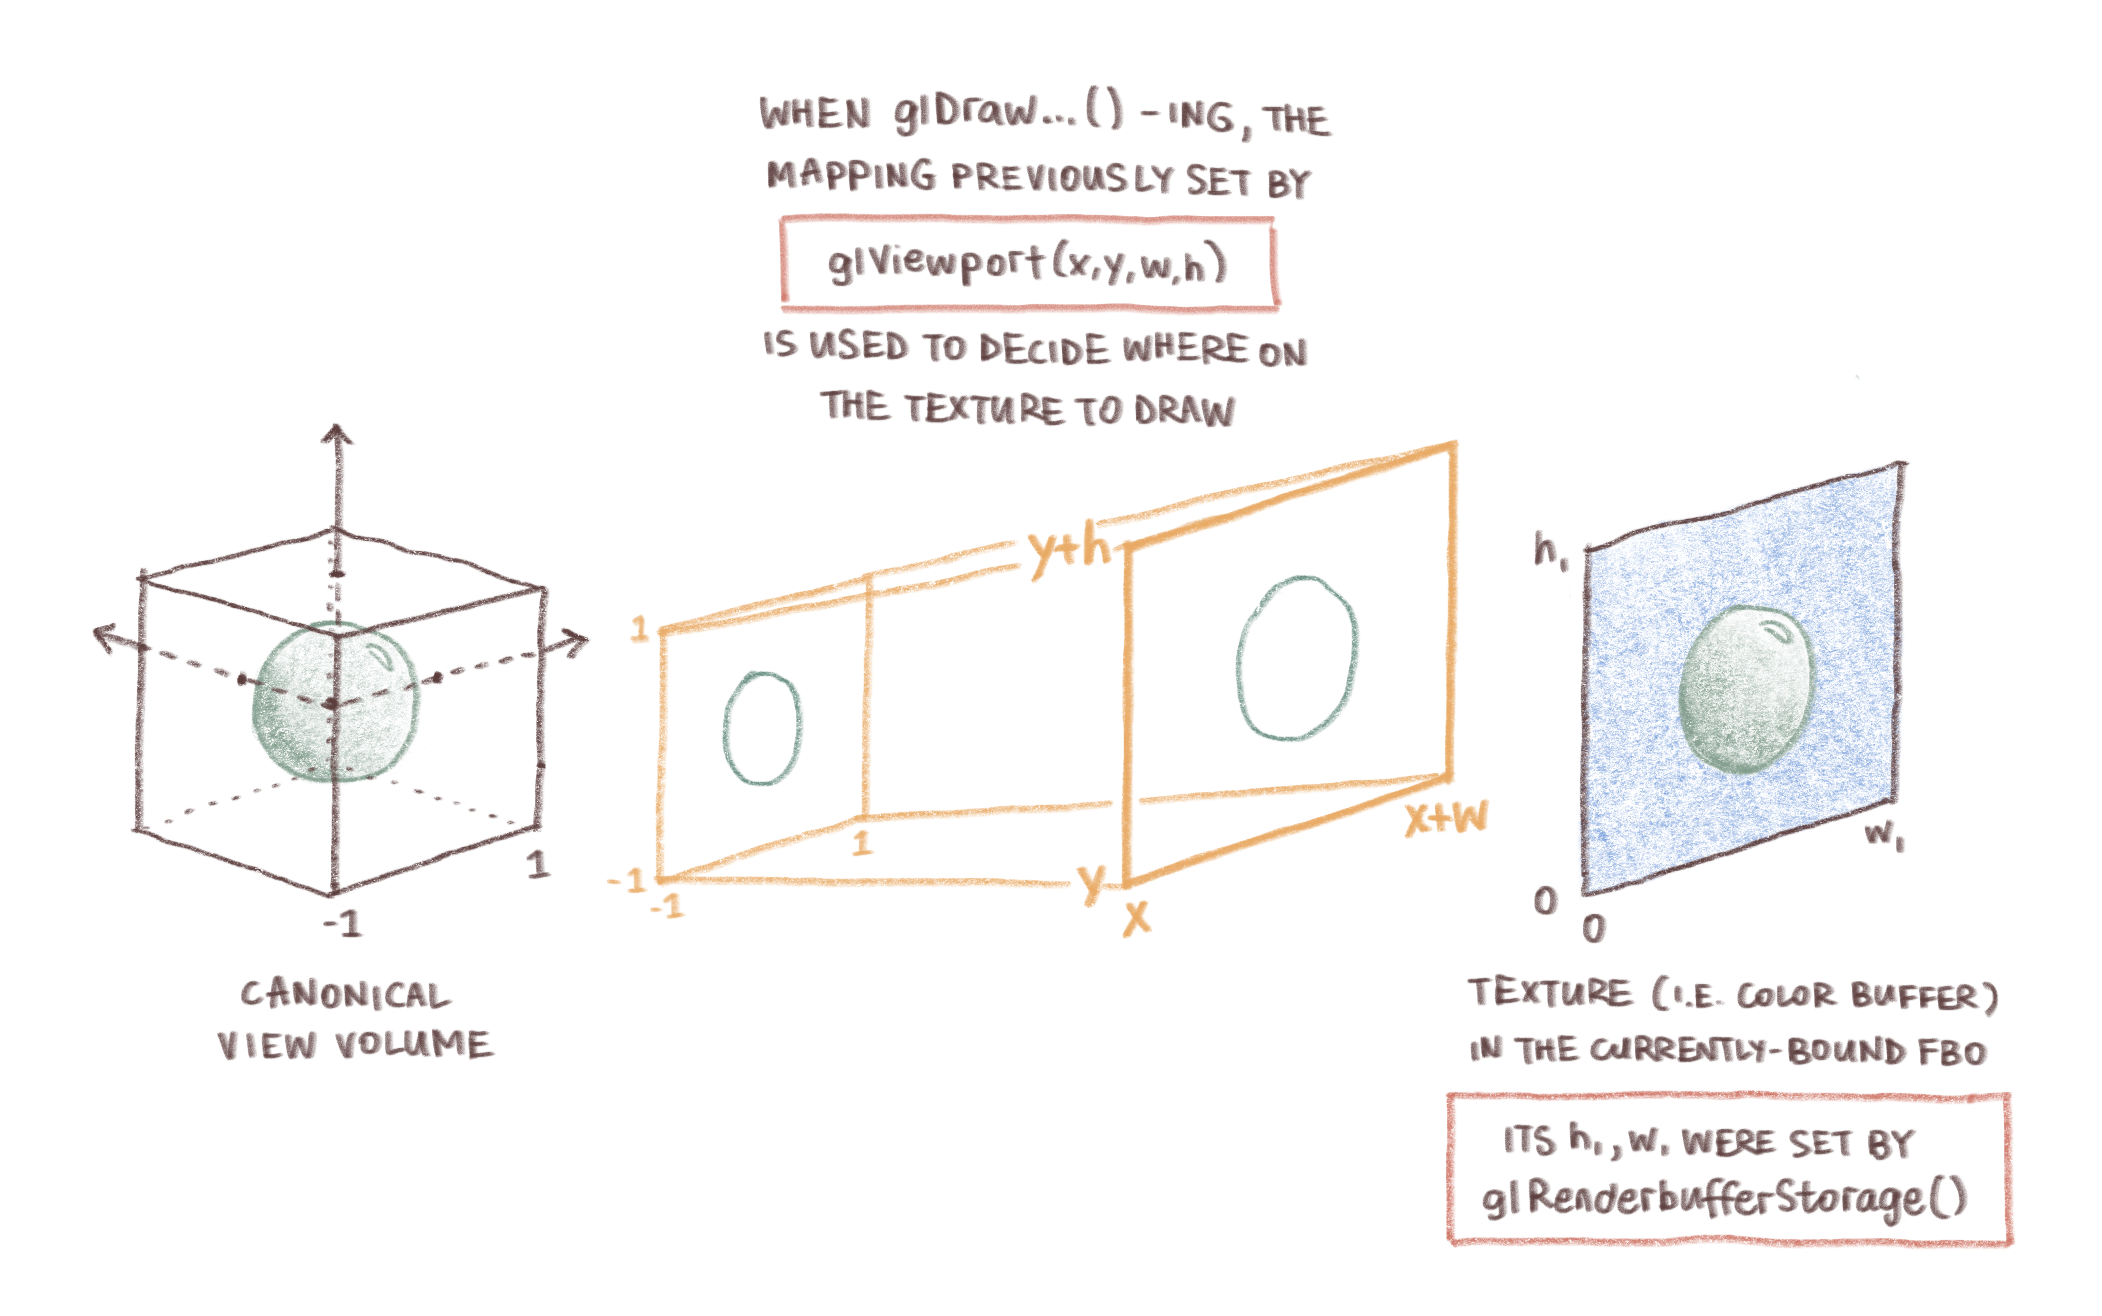 WHEN glDraw...() -ING, THE
MAPPING PREVIOUSLY SET BY
glViewport(x,y,w,h)
IS USED TO DECIDE WHERE ON
THE TEXTURE TO DRAW
1
-1
CANONICAL
VIEW VOLUME
1
-1
-1
1
y+h
y
x
x+w
h₁
0
0
w₁
TEXTURE (I.E. COLOR BUFFER)
IN THE CURRENTLY-BOUND FBO
ITS h₁, w₁ WERE SET BY
glRenderbufferStorage()